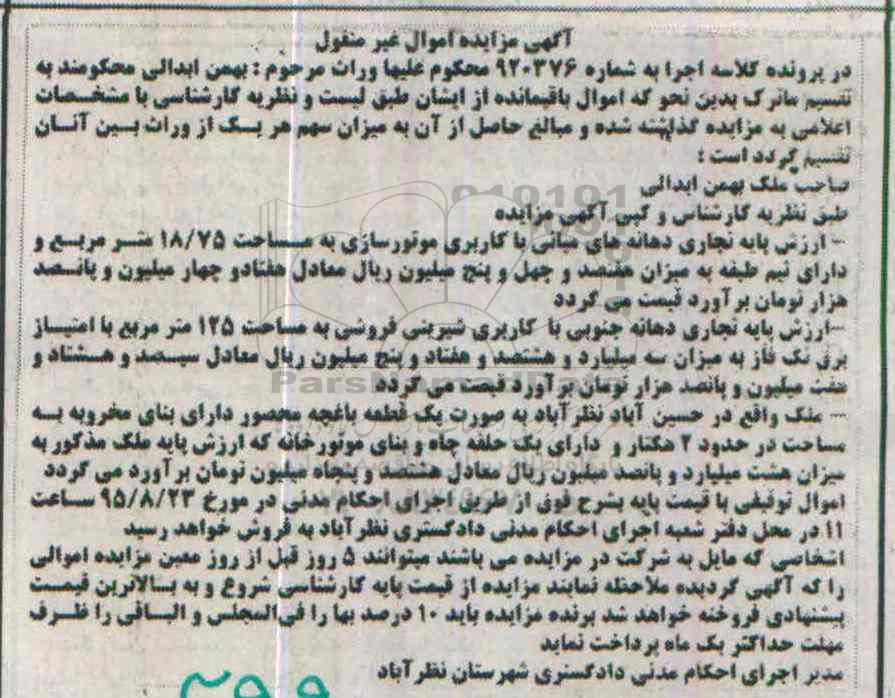 آگهی مزایده اموال غیر منقول
در پرونده کلاسه اجرا به شماره ۹۲۰۳۷۶ محکوم علیها وراث مرحوم : بهمن ابدالی محکومند به
تقسیم ماترک بدین نحو که اموال باقیمانده از ایشان طبق لیست و نظریه کارشناسی با مشخصات
اعلامی به مزایده گذاشته شده و مبالغ حاصل از آن به میزان سهم هر یک از وراث بین آنان
تقسیم گردد است :
صاحب ملک بهمن ابدالی
طبق نظریه کارشناس و کپی آگهی مزایده
– ارزش پایه تجاری دهانه های میانی با کاربری موتورسازی به مساحت ۱۸/۷۵ متر مربع و
دارای نیم طبقه به میزان هفتصد و چهل و پنج میلیون ریال معادل هفتادو چهار میلیون و پانصد
هزار تومان برآورد قیمت می گردد
–ارزش پایه تجاری دهانه جنوبی با کاربری شیرینی فروشی به مساحت ۱۲۵ متر مربع با امتیاز
برق تک فاز به میزان سه میلیارد و هشتصد و هفتاد و پنج میلیون ریال معادل سیصد و هشتاد و
هفت میلیون و پانصد هزار تومان برآورد قیمت می گردد
– ملک واقع در حسین آباد نظرآباد به صورت یک قطعه باغچه محصور دارای بنای مخروبه به
مساحت در حدود ۲ هکتار و دارای یک حلقه چاه و بنای موتورخانه که ارزش پایه ملک مذکور به
میزان هشت میلیارد و پانصد میلیون ریال معادل هشتصد و پنجاه میلیون تومان برآورد می گردد
اموال توقیفی با قیمت پایه بشرح فوق از طریق اجرای احکام مدنی در مورخ ۹۵/۸/۲۳ ساعت
۱۱ در محل دفتر شعبه اجرای احکام مدنی دادگستری نظرآباد به فروش خواهد رسید
اشخاصی که مایل به شرکت در مزایده می باشند میتوانند ۵ روز قبل از روز معین مزایده اموالی
را که آگهی گردیده ملاحظه نمایند مزایده از قیمت پایه کارشناسی شروع و به بالاترین قیمت
پیشنهادی فروخته خواهد شد برنده مزایده باید ۱۰ درصد بها را فی المجلس و الباقی را ظرف
مهلت حداکثر یک ماه پرداخت نماید
مدیر اجرای احکام مدنی دادگستری شهرستان نظرآباد
۲۹۹